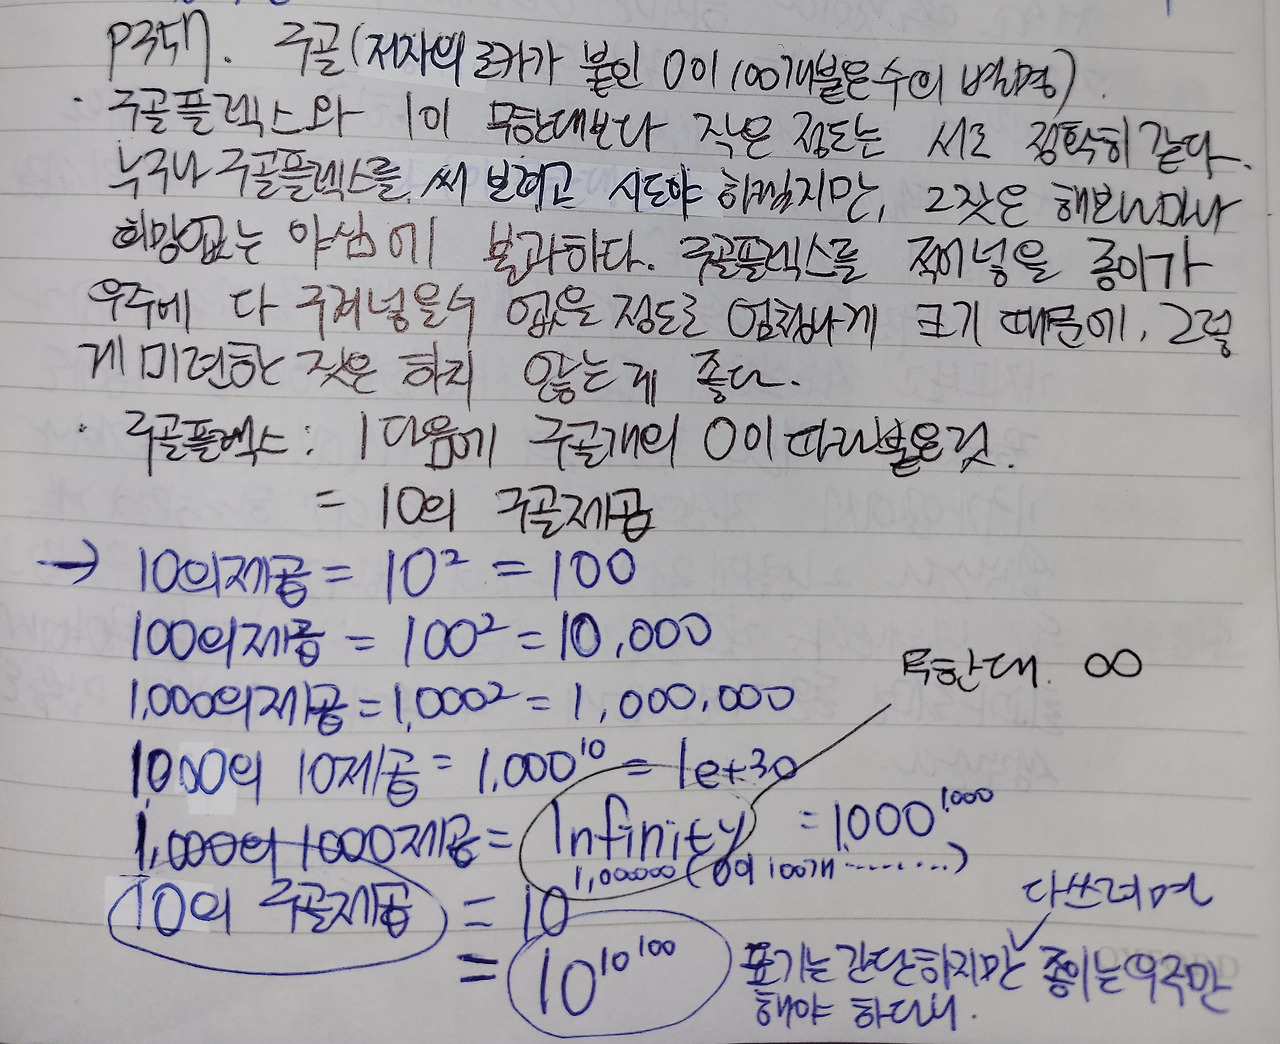 P357. 구골(저자의 조카가 붙인 0이 100개붙은수의 별명).
· 구골플렉스와 1이 무한대보다 작은 정도는 서로 정확히 같다.
누구나 구골플렉스를 써 보려고 시도야 하겠지만, 그짓은 해보나마나
희망없는 야심에 불과하다. 구골플렉스를 적어넣을 종이가
우주에 다 구겨넣을수 없을 정도로 엄청나게 크기 때문에, 그렇
게 미련한 짓은 하지 않는게 좋다.
· 구골플렉스 : 1다음에 구골개의 0이 따라붙은것.
= 10의 구골제곱
→ 10의제곱 = 10² = 100
100의제곱 = 100² = 10,000
1,000의제곱 = 1,000² = 1,000,000
무한대. ∞
1,000의 10제곱 = 1,000¹⁰ = 1e+30
1,000의 1000제곱 = Infinity = 1,000^1,000
10의 구골제곱 = 10^1,00000 (0이 100개········)
= 10^10^100
다쓰려면
표기는 간단하지만 종이는 우주만
해야 하다니.